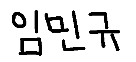 임민규